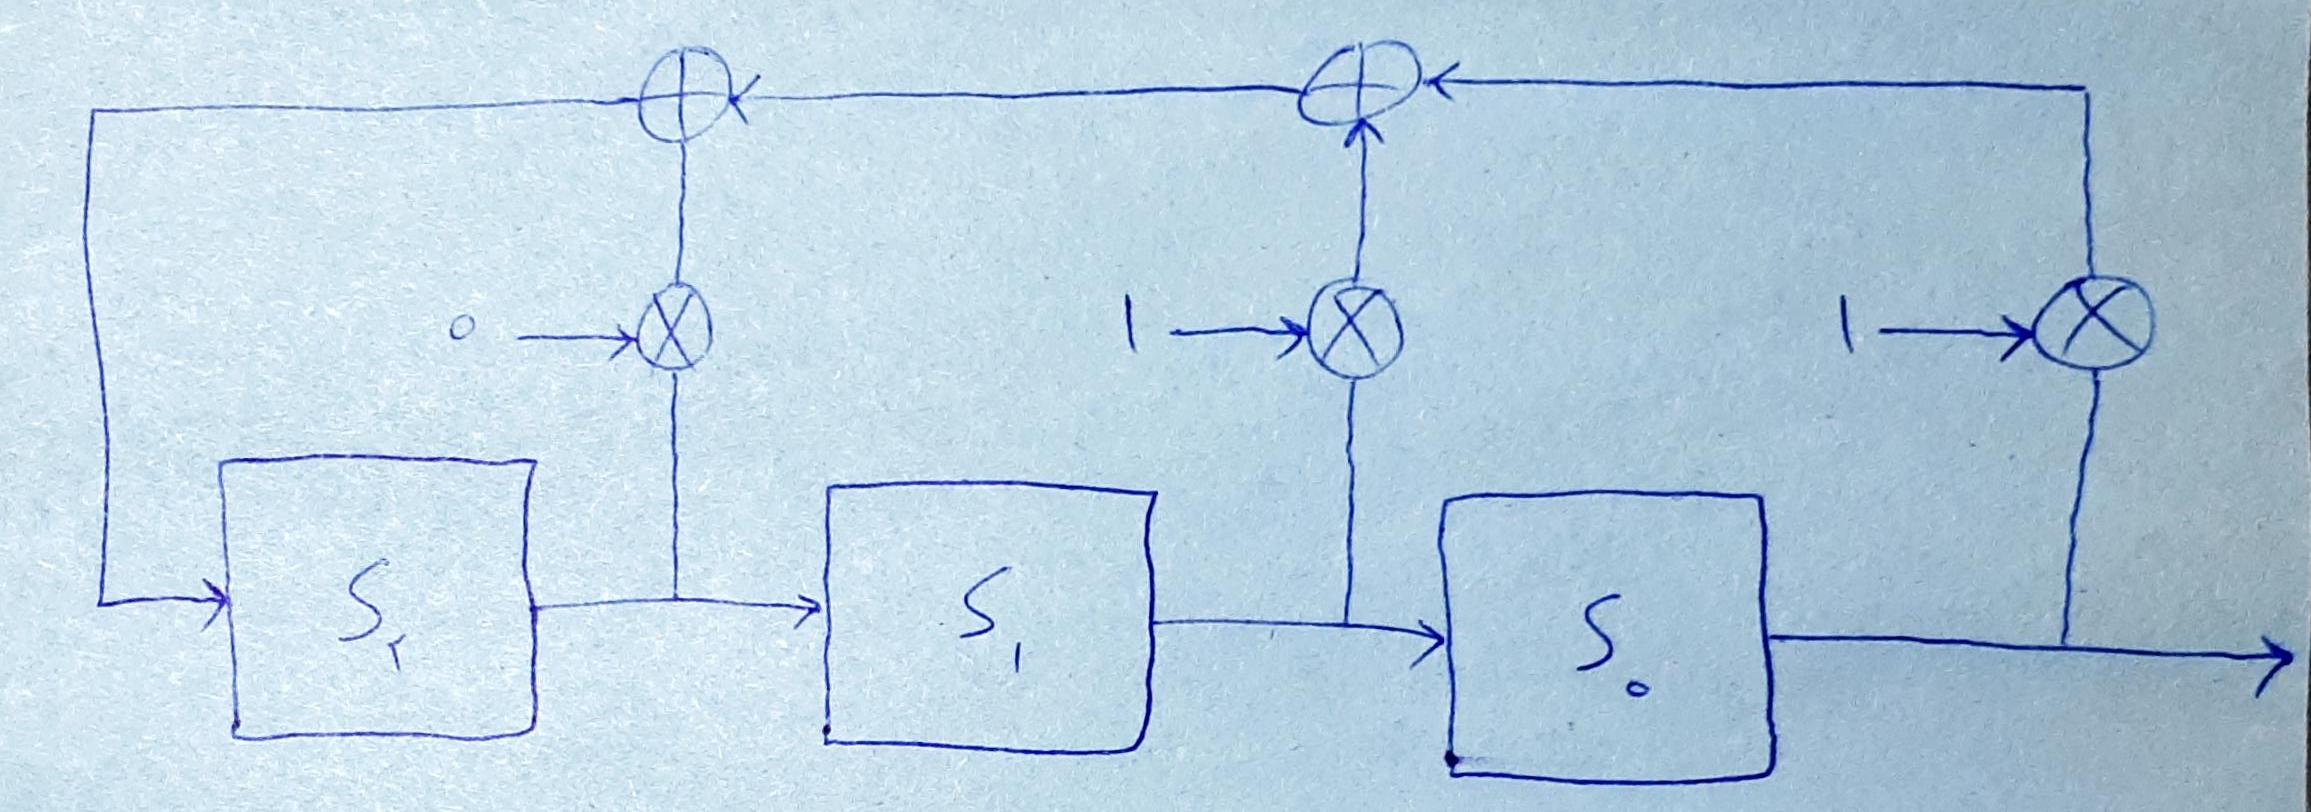 0 1 1
S۲ S1 S0